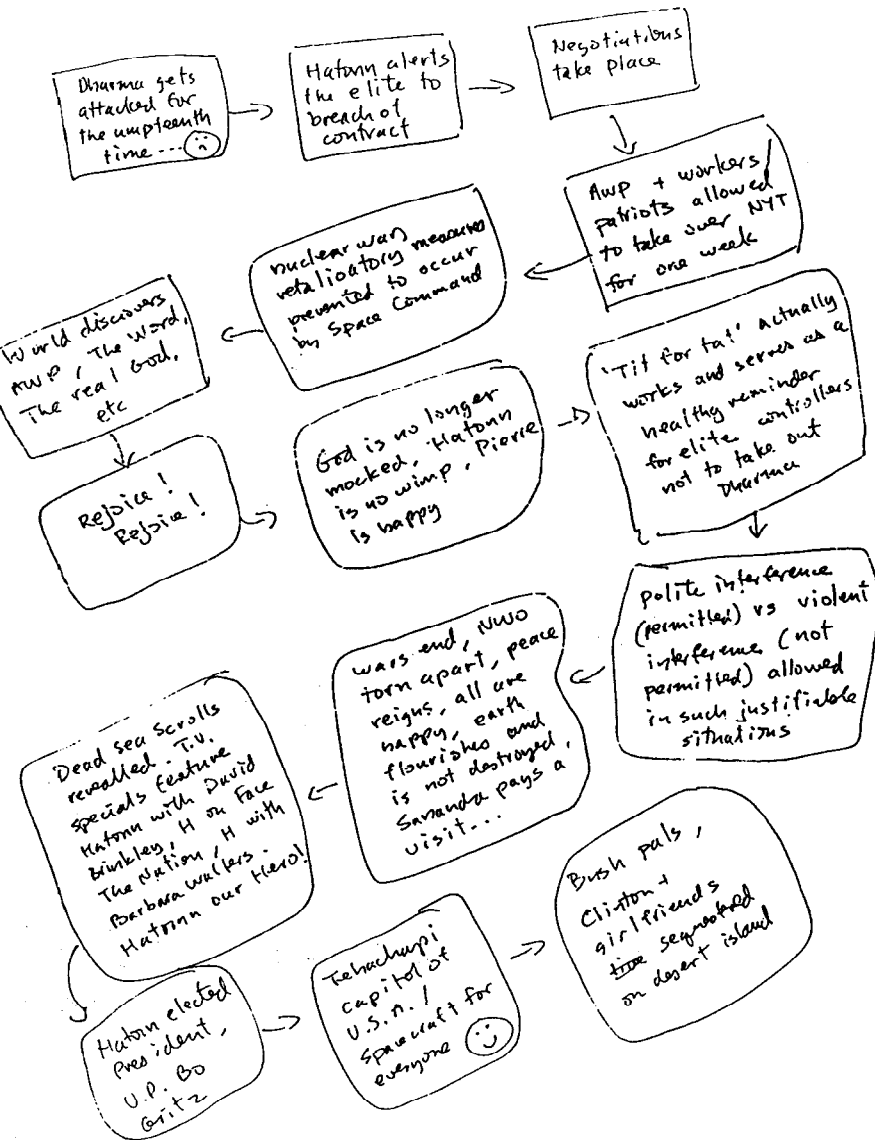 Dharma gets
attacked for
the umpteenth
time...
Hatonn alerts
the elite to
breach of
contract
Negotiations
take place
AWP + workers/
patriots allowed
to take over NYT
for one week
nuclear war,
retaliatory measures
prevented to occur
by Space Command
World discovers
AWP, The Word,
The real God,
etc
Rejoice!
Rejoice!
God is no longer
mocked, Hatonn
is no wimp, Pierre
is happy
'Tit for tat' actually
works and serves as a
healthy reminder
for elite controllers
not to take out
Dharma
polite interference
(permitted) vs violent
interference (not
permitted) allowed
in such justifiable
situations
Wars end, NWO
torn apart, peace
reigns, all are
happy, earth
flourishes and
is not destroyed,
Sananda pays a
visit...
Dead sea scrolls
revealled. T.V.
specials feature
Hatonn with David
Brinkley, H on Face
The Nation, H with
Barbara Walters.
Hatonn our Hero!
Hatonn elected
President,
V.P. Bo
Gritz
Tehachapi
capitol of
U.S.A. /
spacecraft for
everyone
Bush pals,
Clinton +
girlfriends
sequestred
on desert island